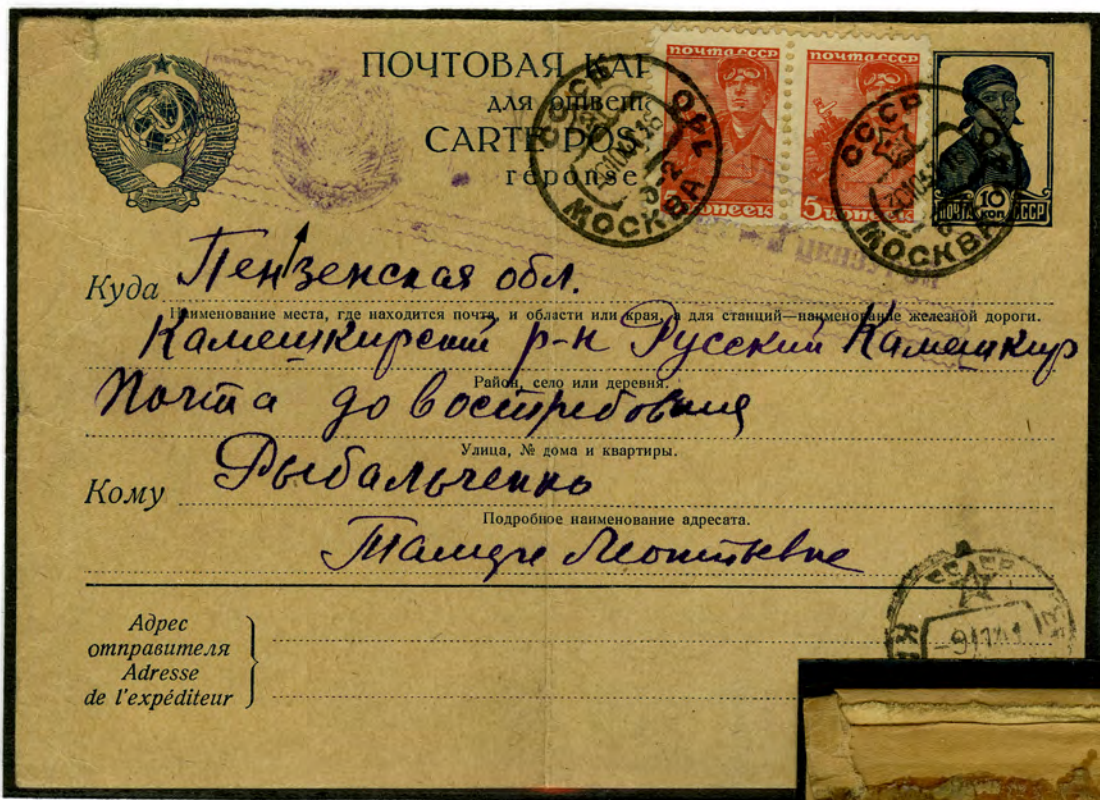 ПОЧТОВАЯ КАР
для ответа
CARTE POS
réponse
ПОЧТА СССР
5 копеек
ПОЧТА СССР
5 копеек
10
КОП
ПОЧТА СССР
СССР
МОСКВА
СССР
МОСКВА
ЦЕНЗУРОЙ
Куда Пензенская обл.
Наименование места, где находится почта, и области или края, а для станций—наименование железной дороги.
Камешкирский р-н Русский Камешкир
Район, село или деревня.
Почта до востребования
Улица, № дома и квартиры.
Кому Рыбальченко
Подробное наименование адресата.
Тамаре Леонтьевне
Адрес
отправителя
Adresse
de l'expéditeur